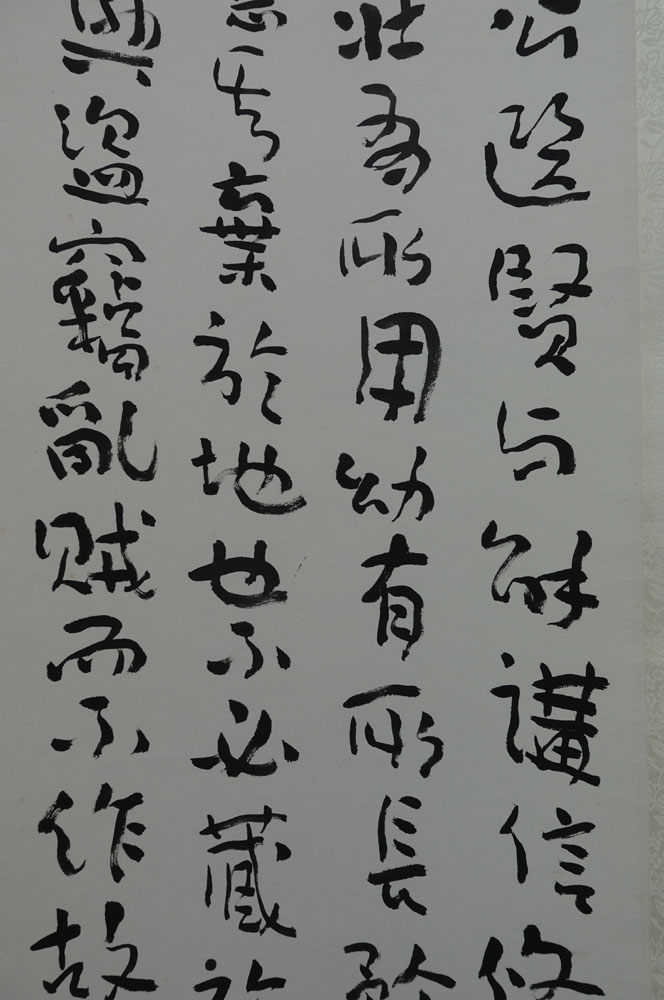 公選賢与能講信修
壯有所用幼有所長矜
惡其棄於地也不必藏於
興盜竊亂賊而不作故